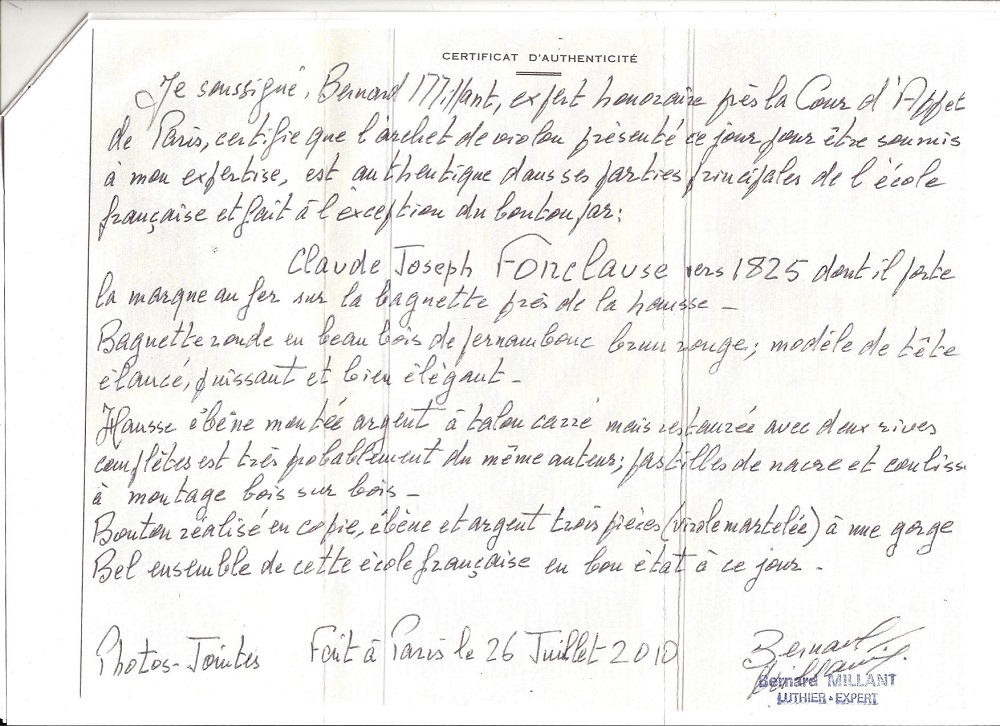 CERTIFICAT D'AUTHENTICITÉ
Je soussigné, Bernard Millant, expert honoraire près la Cour d'Appel
de Paris, certifie que l'archet de violon présenté ce jour pour être soumis
à mon expertise, est authentique dans ses parties principales de l'école
française et fait à l'exception du bouton par:
Claude Joseph Fonclause vers 1825 dont il porte
la marque au fer sur la baguette près de la hausse -
Baguette ronde en beau bois de pernambouc brun rouge; modèle de tête
élancé, puissant et bien élégant -
Hausse ébène montée argent à talon carré mais restaurée avec deux rives
complètes est très probablement du même auteur; pastilles de nacre et couliss
à montage bois sur bois -
Bouton réalisé en copie, ébène et argent trois pièces (virole martelée) à une gorge
Bel ensemble de cette école française en bon état à ce jour -
Photos-Jointes Fait à Paris le 26 Juillet 2010
Bernard Millant
Bernard MILLANT
LUTHIER - EXPERT